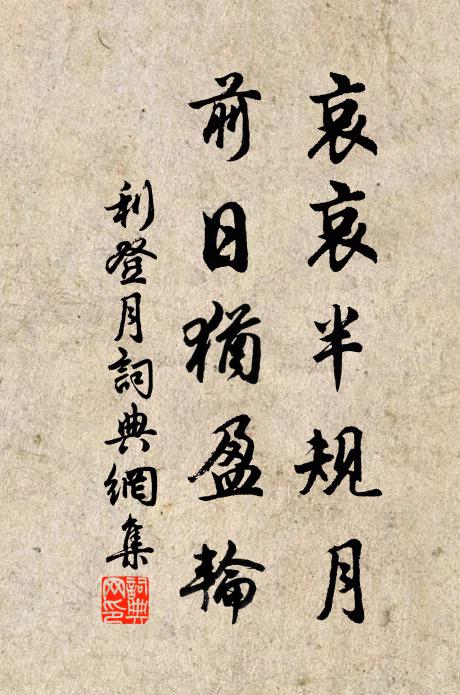 哀哀半規月
前日猶盈輪
利登月詞典網集
詞典
网印